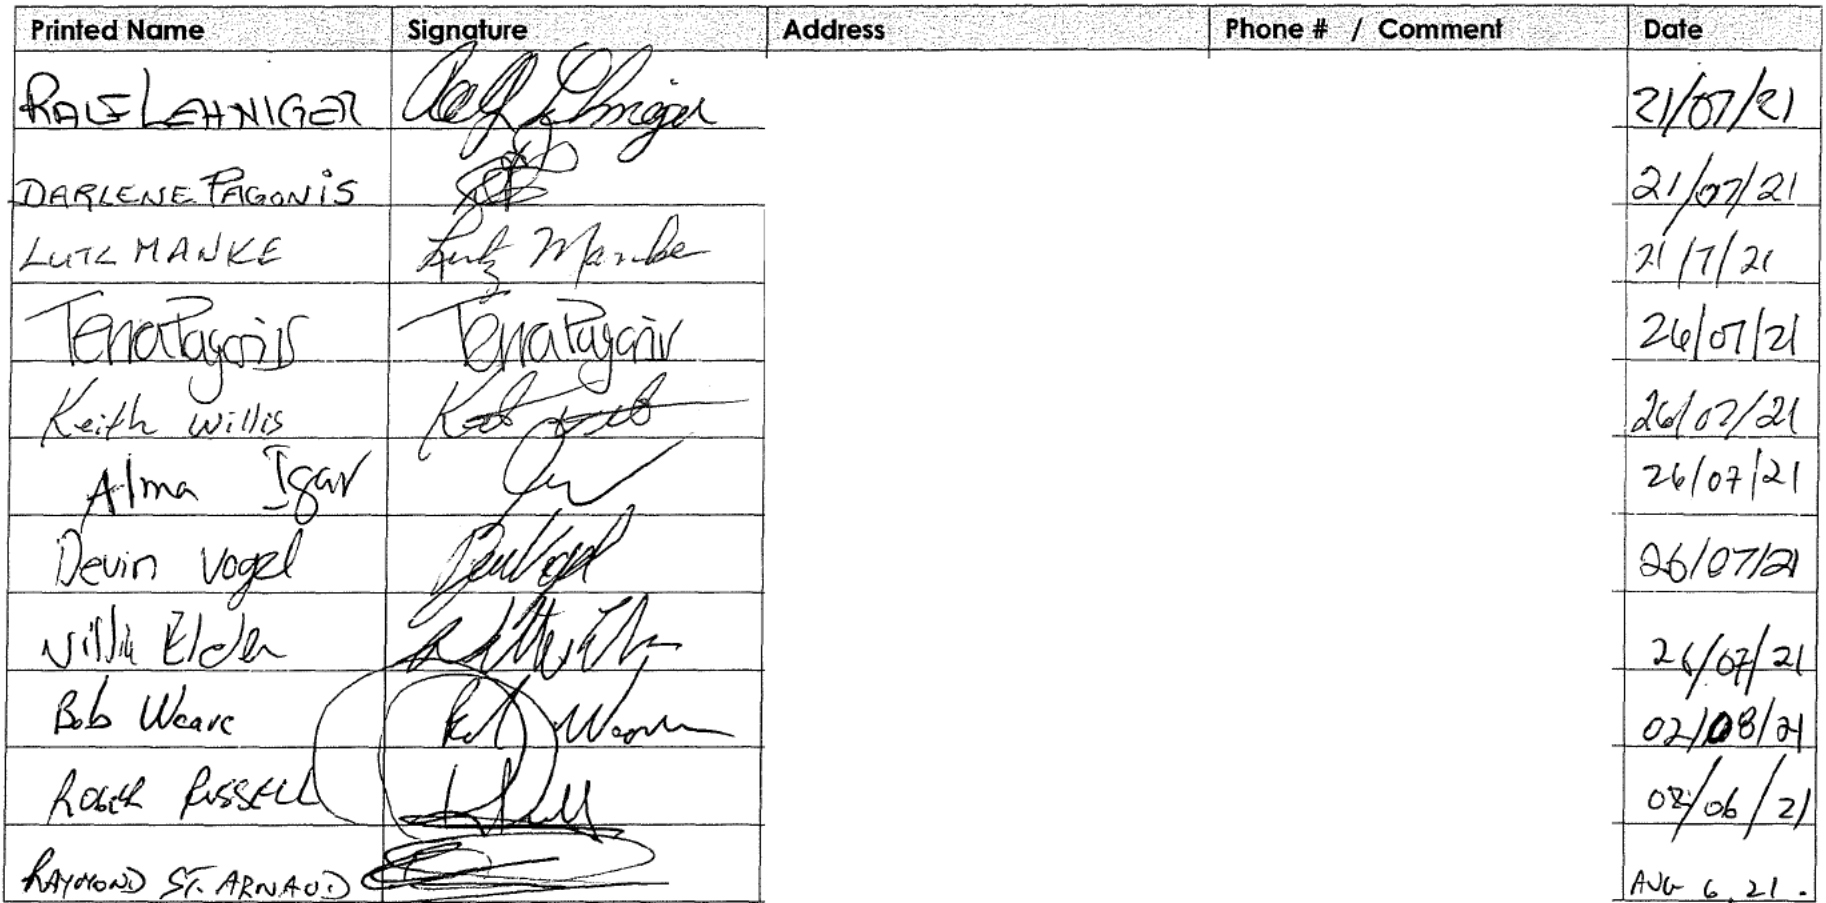 Printed Name Signature Address Phone # / Comment Date
RALF LEHNIGER Ralf Lehniger 21/07/21
DARLENE PAGONIS 21/07/21
LUTZ MANKE Lutz Manke 21/7/21
Terra Pagonis Terra Pagonis 26/07/21
Keith Willis 26/07/21
Alma Igar 26/07/21
Devin Vogel Dev Vogel 26/07/21
Willie Elder 26/07/21
Bob Weave 02/08/21
ROGER RUSSELL 08/06/21
RAYMOND ST. ARNAUD AUG 6, 21.